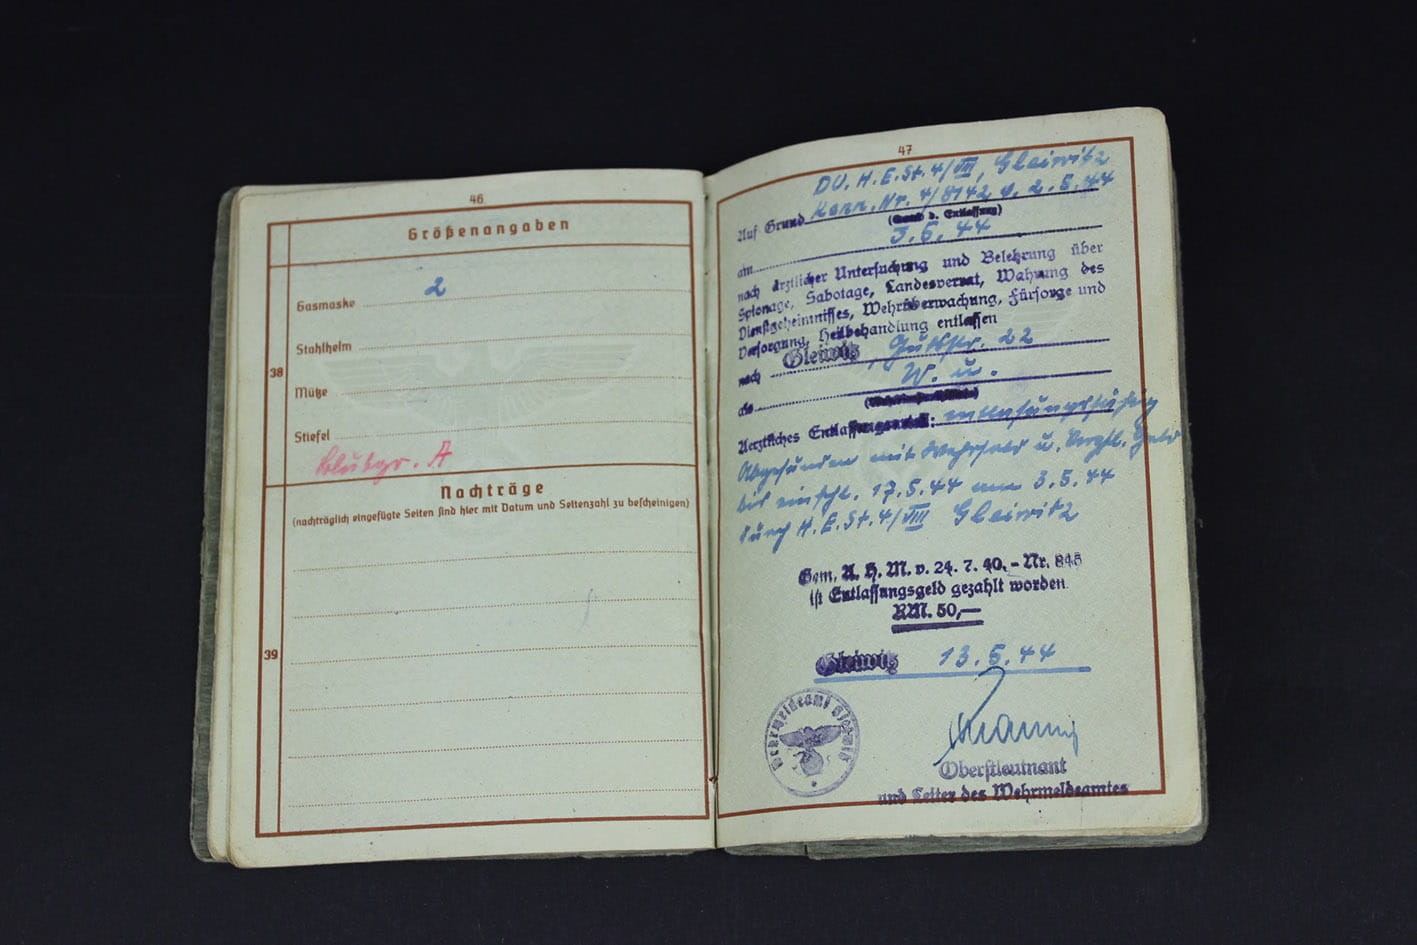 46
Größenangaben
38
Gasmaske 2
Stahlhelm
Mütze
Stiefel
Blutgr. A
Nachträge
(nachträglich eingefügte Seiten sind hier mit Datum und Seitenzahl zu bescheinigen)
39
47
DU. H.E.St. 4/VIII, Gleiwitz
Auf Grund Kenn.Nr. 4/8142 v. 2.5.44
(Grund d. Entlassung)
am 3.5.44
nach ärztlicher Untersuchung und Belehrung über
Spionage, Sabotage, Landesverrat, Wahrung des
Dienstgeheimnisses, Wehrüberwachung, Fürsorge und
Versorgung, Heilbehandlung entlassen
nach Gleiwitz, 22
als W. u.
Aerztliches
Abgefunden mit Wehrsold u. Verpfl. Geld
bis einschl. 17.5.44 am 3.5.44
durch H.E.St. 4/VIII Gleiwitz
Gem. A. H. M. v. 24. 7. 40. - Nr. 845
ist Entlassungsgeld gezahlt worden
RM. 50,—
Gleiwitz 13.5.44
Wehrmeldeamt Gleiwitz
Oberstleutnant
und Leiter des Wehrmeldeamtes